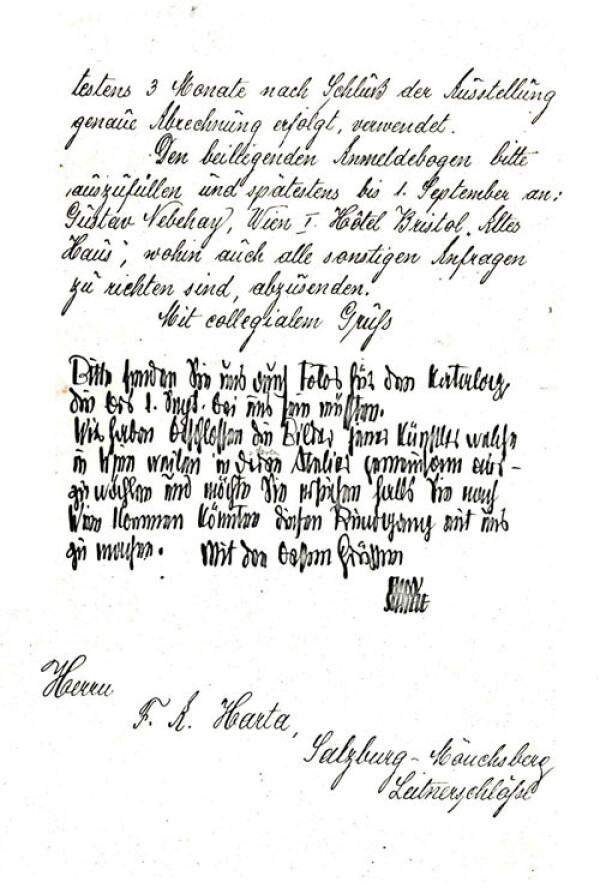 testens 3 Monate nach Schluß der Ausstellung
genaue Abrechnung erfolgt, verwendet.
Den beiliegenden Anmeldebogen bitte
auszufüllen und spätestens bis 1. September an:
Gustav Nebehay, Wien I. Hôtel Bristol „Altes
Haus“, wohin auch alle sonstigen Anfragen
zu richten sind, abzusenden.
Mit collegialem Gruß
Bitte senden Sie uns auch Fotos für den Katalog,
die bis 1. Sept. bei uns sein müssen.
Wir haben beschlossen die Bilder jener Künstler welche
in Wien weilen in deren Atelier gemeinsam aus-
zuwählen und möchte Sie ersuchen falls Sie nach
Wien kommen könnten diesen Rundgang mit uns
zu machen. Mit den besten Grüssen
Herrn
F. A. Harta,
Salzburg - Mönchsberg
Leitnerschlößl